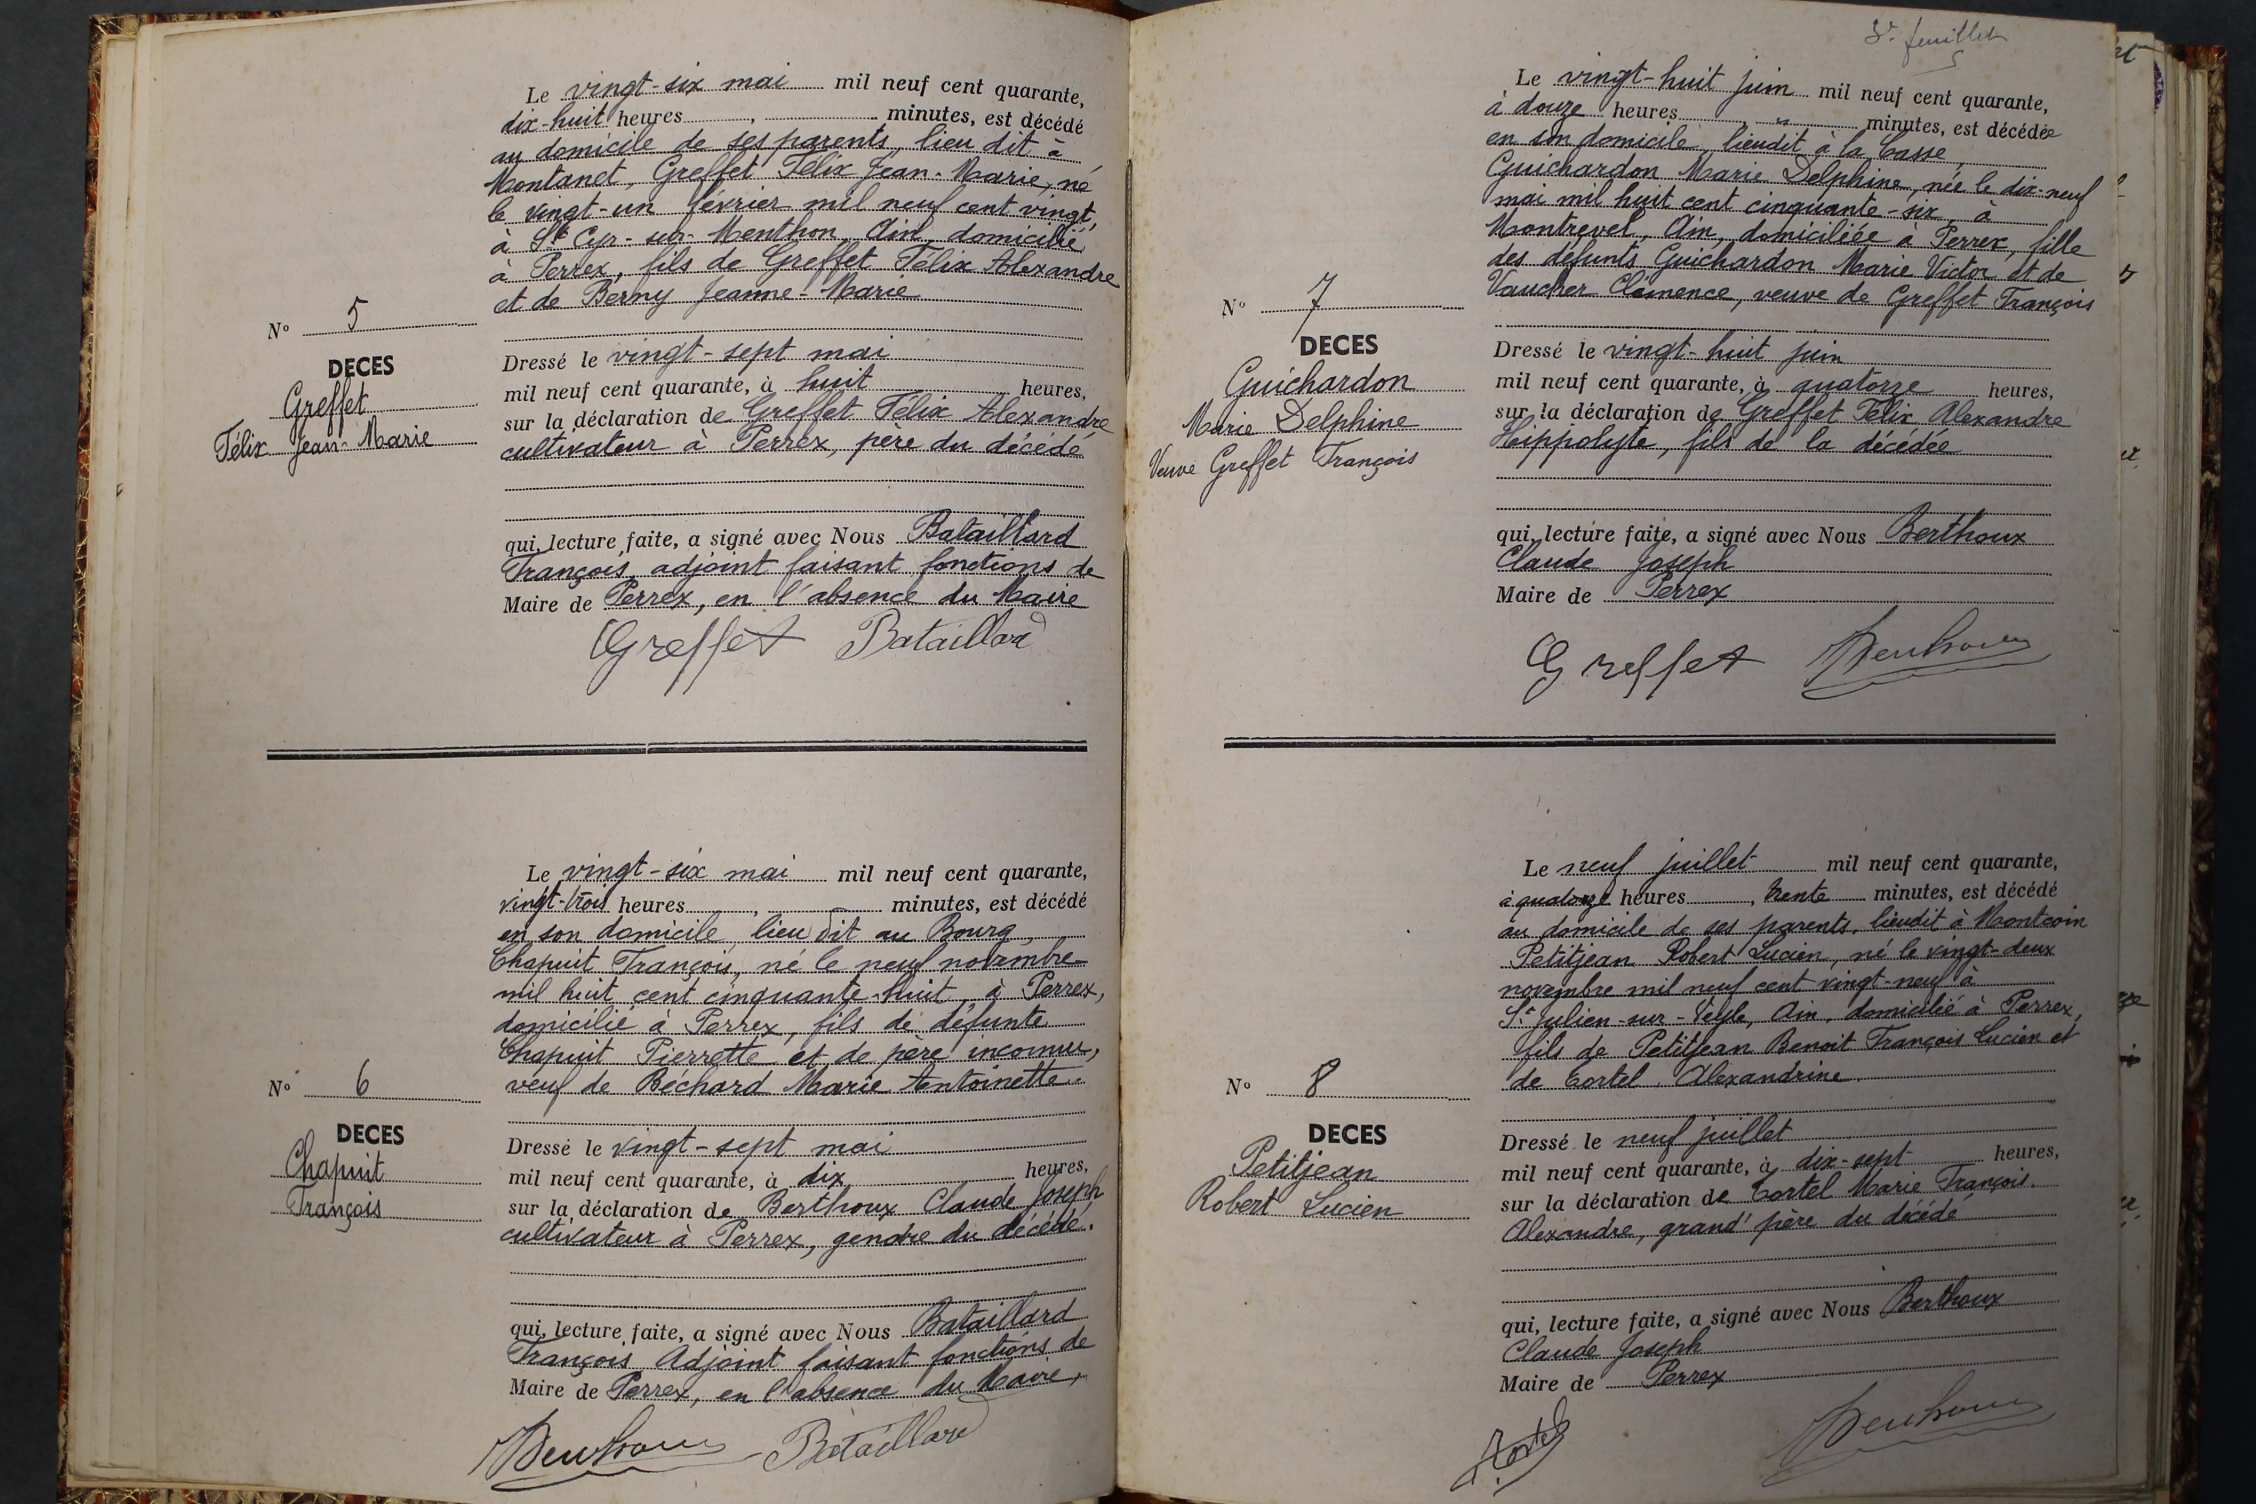 Le vingt-six mai mil neuf cent quarante,
dix-huit heures, minutes, est décédé
au domicile de ses parents, lieu dit à
Montanet, Greffet Félix Jean-Marie, né
le vingt-un février mil neuf cent vingt,
à St Cyr-sur-Menthon, Ain, domicilié
à Perrex, fils de Greffet Félix Alexandre
et de Berny Jeanne-Marie
N° 5
DECES
Greffet
Félix Jean-Marie
Dressé le vingt-sept mai
mil neuf cent quarante, à huit heures,
sur la déclaration de Greffet Félix Alexandre
cultivateur à Perrex, père du décédé
qui, lecture faite, a signé avec Nous Bataillard
François, adjoint faisant fonctions de
Maire de Perrex, en l'absence du Maire
Greffet Bataillard
Le vingt-six mai mil neuf cent quarante,
vingt-trois heures, minutes, est décédé
en son domicile, lieu dit au Bourg,
Chapuit François, né le neuf novembre
mil huit cent cinquante-huit, à Perrex,
domicilié à Perrex, fils de défunte
Chapuit Pierrette et de père inconnu,
veuf de Béchard Marie Antoinette.
N° 6
DECES
Chapuit
François
Dressé le vingt-sept mai
mil neuf cent quarante, à dix heures,
sur la déclaration de Berthoux Claude Joseph
cultivateur à Perrex, gendre du décédé.
qui, lecture faite, a signé avec Nous Bataillard
François Adjoint faisant fonctions de
Maire de Perrex, en l'absence du Maire,
Berthoux Bataillard
3e feuillet
Le vingt-huit juin mil neuf cent quarante,
à douze heures, " minutes, est décédée
en son domicile, lieudit à la Casse,
Guichardon Marie Delphine, née le dix-neuf
mai mil huit cent cinquante-six, à
Montrevel, Ain, domiciliée à Perrex, fille
des défunts Guichardon Marie Victor et de
Vaucher Clémence, veuve de Greffet François
N° 7
DECES
Guichardon
Marie Delphine
Veuve Greffet François
Dressé le vingt-huit juin
mil neuf cent quarante, à quatorze heures,
sur la déclaration de Greffet Félix Alexandre
Hippolyte, fils de la décédée
qui, lecture faite, a signé avec Nous Berthoux
Claude Joseph
Maire de Perrex
Greffet Berthoux
Le neuf juillet mil neuf cent quarante,
à quatorze heures, trente minutes, est décédé
au domicile de ses parents, lieudit à Montcoin
Petitjean Robert Lucien, né le vingt-deux
novembre mil neuf cent vingt-neuf à
St Julien-sur-Veyle, Ain, domicilié à Perrex,
fils de Petitjean Benoit François Lucien et
de Cortel Alexandrine
N° 8
DECES
Petitjean
Robert Lucien
Dressé le neuf juillet
mil neuf cent quarante, à dix-sept heures,
sur la déclaration de Cortel Marie François.
Alexandre, grand'père du décédé
qui, lecture faite, a signé avec Nous Berthoux
Claude Joseph
Maire de Perrex
Cortel Berthoux